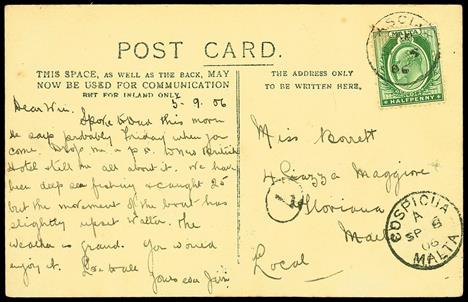 POST CARD.
THIS SPACE, AS WELL AS THE BACK, MAY
NOW BE USED FOR COMMUNICATION
BUT FOR INLAND ONLY.
THE ADDRESS ONLY
TO BE WRITTEN HERE.
5-9.06
Dear Win.
Spoke to Dad this morn
he says probably Friday when you
come. Drop me a p.c. to New British
Hotel & tell me all about it. We have
been deep sea fishing & caught 25
but the movement of the boat has
slightly upset Walter. The
weather is grand. You would
enjoy it. Love to all
Yours
Miss Borrett
4 Piazza Maggiore
Floriana
Malta
Local
MALTA
HALFPENNY
COSPICUA
A
SP 6
06
MALTA